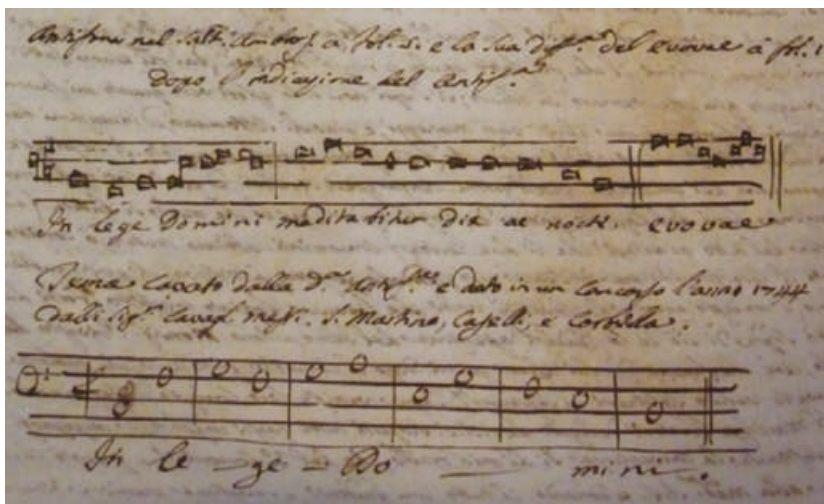 Antifona nel Salt. Ambros. a fol. 5. e la sua diff.ª del evovae a fol. 1
dopo l'indicazione del Antif.ª
In lege Domini meditabitur die ac nocte. evovae
Tema cavato dalla d.ª e dato in un concorso l'anno 1744
dalli Sig.ri S. Martino, Caselli, e
In le-ge-Do-mini.